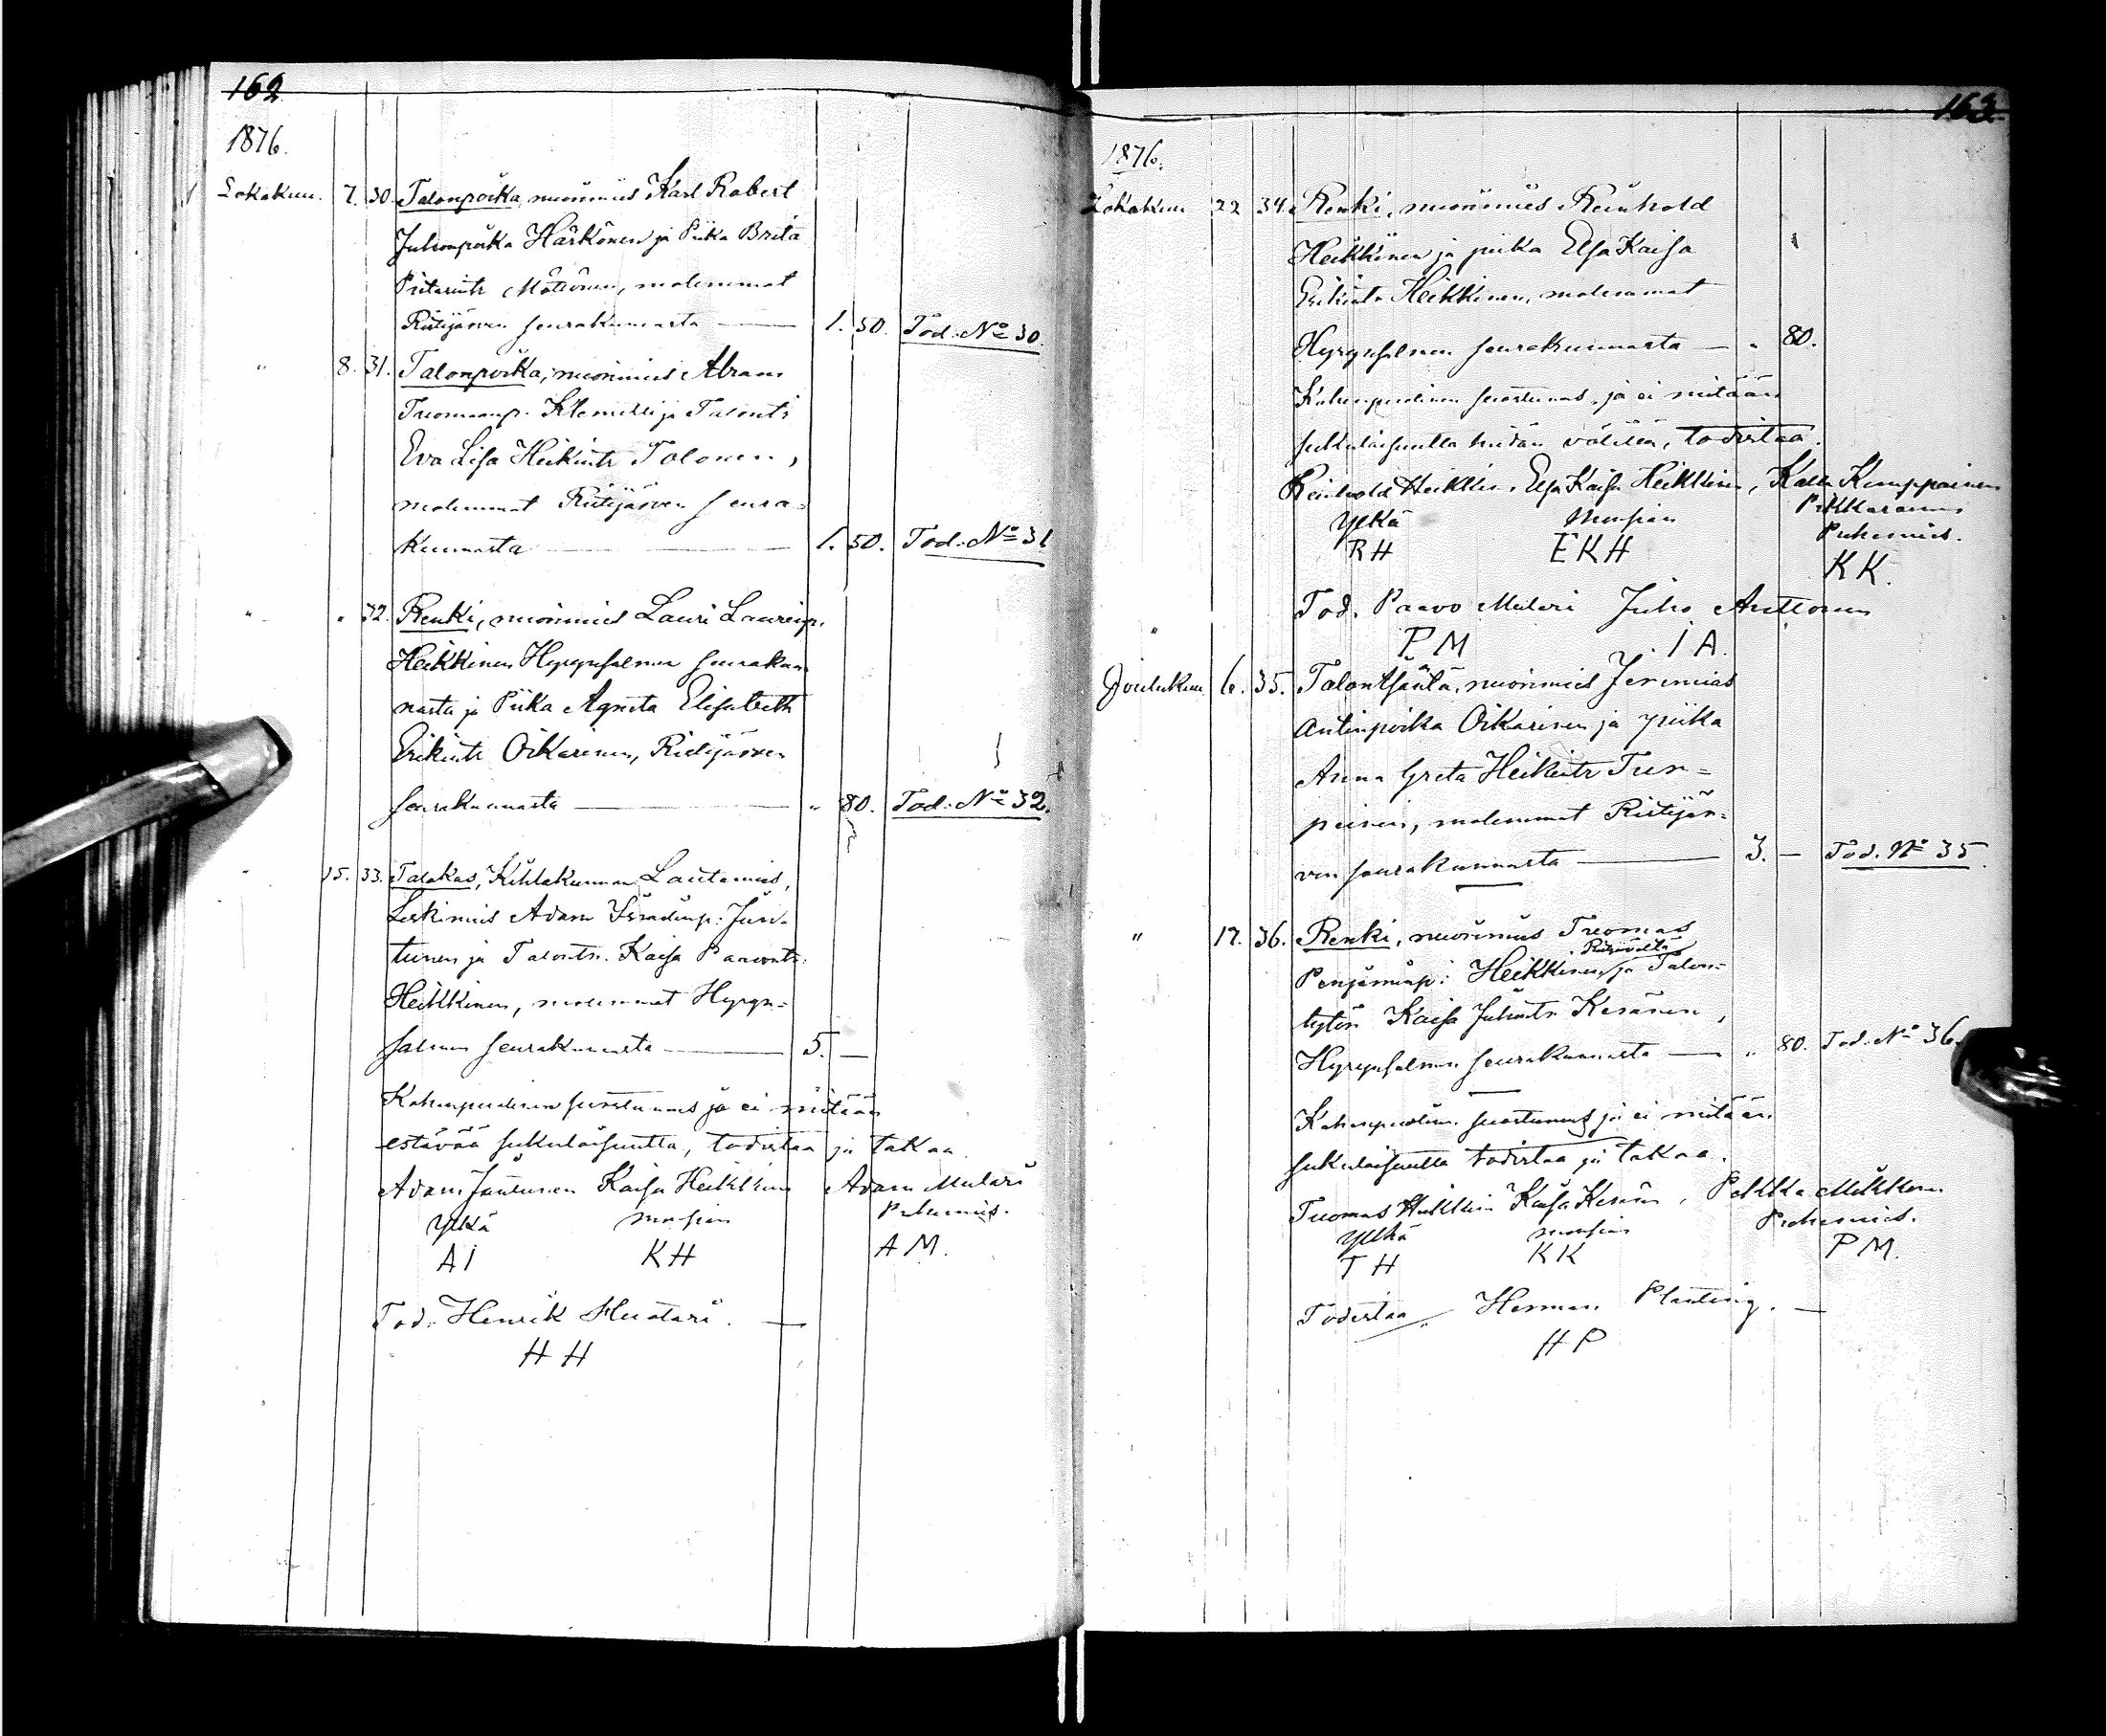 162
1876.
Lokakuu. 7. 30. Talonpoika, nuorimies Karl Robert
Juhonpoika Härkönen ja Piika Brita
Pietarintr Möttönen, molemmat
Ristijärven seurakunnasta — 1. 50. Tod. No 30.
" 8. 31. Talonpoika, nuorimies Abram
Tuomaanp. Klemetti ja Talontr
Eva Lisa Heikintr Tolonen,
molemmat Ristijärven seura-
kunnasta — 1. 50. Tod. No 31
" " 32. Renki, nuorimies Lauri Laurinp.
Heikkinen Hyrynsalmen seurakun
nasta ja Piika Agneta Elisabeth
Erikintr Oikarinen, Ristijärven
seurakunnasta — " 80. Tod. No 32.
" 15. 33. Talokas, Kihlakunnan Lautamies,
Leskimies Adam Jun-
tunen ja Talontr. Kaisa Paavontr.
Heikkinen, molemmat Hyryn-
salmen seurakunnasta — 5. —
Kahenpuolinen suostumus ja ei mitään
estävää sukulaisuutta, todistaa ja takaa
Adam Juntunen Kaisa Heikkinen Adam Mulari
Ylkä morsian Puhemies.
A I K H A M.
Tod. Henrik Huotari. —
H H
163
1876.
Lokakuu 22 34. Renki, nuorimies Reinhold
Heikkinen ja piika Elsa Kaisa
Erikintr Heikkinen, molemmat
Hyrynsalmen seurakunnasta — " 80.
Kahenpuolinen suostumus, ja ei mitään
sukulaisuutta heidän välillä, todistaa.
Reinhold Heikkin. Elsa Kaisa Heikkinen, Kalle Kemppainen
Ylkä Morsian
Puhemies.
R H E K H K K.
Tod. Paavo Mulari Juho Anttonen
P M I A.
Joulukuu 6. 35. Talontsäntä, nuorimies Jeremias
Antinpoika Oikarinen ja piika
Anna Greta Heikintr Tur-
peinen, molemmat Ristijär-
ven seurakunnasta — 3. — Tod. No 35.
" 17. 36. Renki, nuorimies Tuomas
Penjaminp: Heikkinen ja Talon-
tytön Kaisa Juhontr Keränen,
Hyrynsalmen seurakunnasta — " 80. Tod. No 36.
Kahenpuolin. suostumus ja ei mitään
sukulaisuutta todistaa ja takaa.
Tuomas Heikkin Kaisa Kerän, Pekka Mikkonen
Ylkä morsian Puhemies.
T H K K P M.
Todistaa " Herman Planting. —
H P